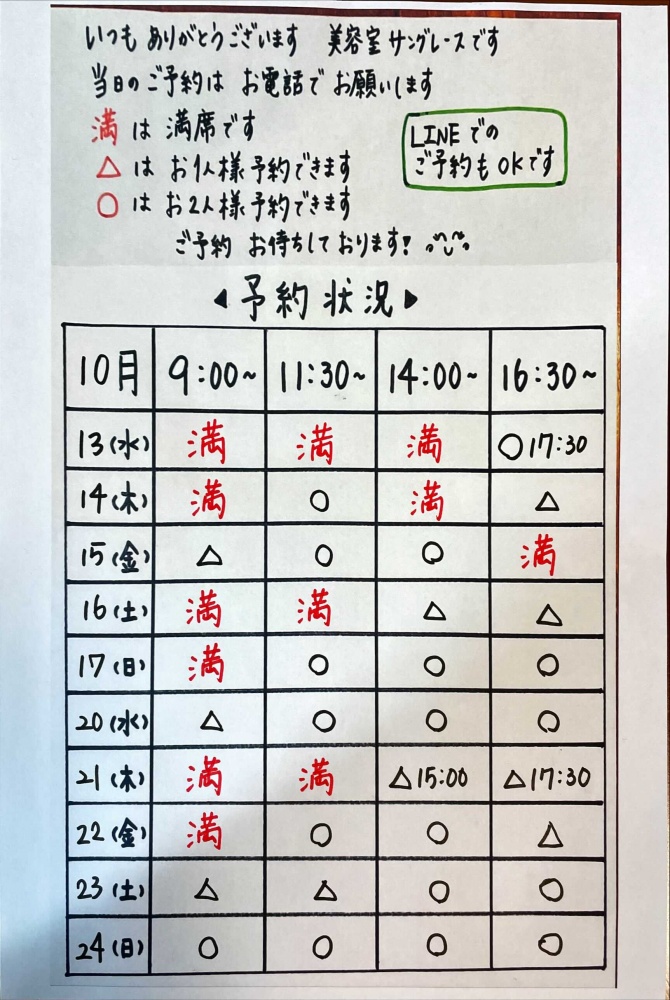 いつもありがとうございます 美容室サングレースです
当日のご予約は お電話で お願いします
満 は 満席です
△ は お1人様予約できます
○ は お2人様予約できます
LINEでの
ご予約もOKです
ご予約 お待ちしております!
◀予約状況▶
10月 9:00~ 11:30~ 14:00~ 16:30~
13(水) 満 満 満 ○17:30
14(木) 満 ○ 満 △
15(金) △ ○ ○ 満
16(土) 満 満 △ △
17(日) 満 ○ ○ ○
20(水) △ ○ ○ ○
21(木) 満 満 △15:00 △17:30
22(金) 満 ○ ○ △
23(土) △ △ ○ ○
24(日) ○ ○ ○ ○